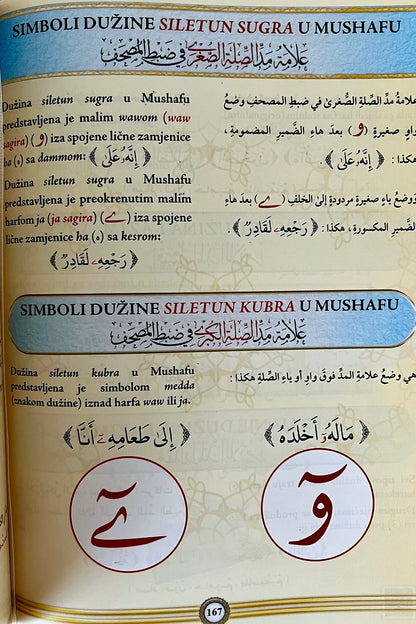 SIMBOLI DUŽINE SILETUN SUGRA U MUSHAFU
عَلَامَةُ مَدِّ الصِّلَةِ الصُّغْرَى فِي ضَبْطِ الْمُصْحَفِ
Dužina siletun sugra u Mushafu
predstavljena je malim wawom (waw
sagira) (و) iza spojene lične zamjenice
ha (ه) sa dammom: ﴿ إِنَّهُۥ عَلَىٰ ﴾
Dužina siletun sugra u Mushafu
predstavljena je preokrenutim malim
harfom ja (ja sagira) (ے) iza spojene
lične zamjenice ha (ه) sa kesrom:
﴿ رَجْعِهِۦ لَقَادِرٌ ﴾
علامةُ مدِّ الصِّلةِ الصُّغرىٰ في ضبطِ المصحفِ وضعُ
واوٍ صغيرةٍ (و) بعدَ هاءِ الضَّميرِ المضمومةِ،
هكذا : ﴿ إِنَّهُۥ عَلَىٰ ﴾ .
ووضعُ ياءٍ صغيرةٍ مردودةٍ إلى الخلفِ (ے) بعدَ هاءِ
الضَّميرِ المكسورةِ، هكذا : ﴿ رَجْعِهِۦ لَقَادِرٌ ﴾ .
SIMBOLI DUŽINE SILETUN KUBRA U MUSHAFU
عَلَامَةُ مَدِّ الصِّلَةِ الْكُبْرَى فِي ضَبْطِ الْمُصْحَفِ
Dužina siletun kubra u Mushafu
predstavljena je simbolom medda
(znakom dužine) iznad harfa waw ili ja.
هي وضعُ علامةِ المدِّ فوقَ واوِ أو ياءِ الصِّلةِ هكذا :
﴿ مَالَهُۥٓ أَخْلَدَهُ ﴾
﴿ إِلَىٰ طَعَامِهِۦٓ أَنَّا ﴾
وٓ
ےٓ
167